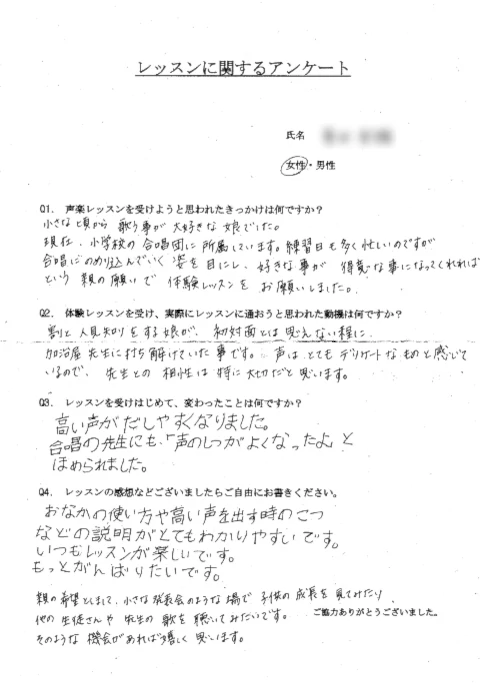 レッスンに関するアンケート
氏名
女性・男性
Q1. 声楽レッスンを受けようと思われたきっかけは何ですか?
小さな頃から 歌う事が 大好きな娘でした。
現在、小学校の合唱団に所属しています。練習日も多く忙しいのですが
合唱にのめり込んでいく姿を目にし、好きな事が 得意な事になってくれれば
という 親の願いで 体験レッスンを お願いしました。
Q2. 体験レッスンを受け、実際にレッスンに通おうと思われた動機は何ですか?
割と 人見知りをする娘が、初対面とは思えない程に
加治屋先生に打ち解けていた事です。声は、とてもデリケートなものと感じて
いるので、先生との 相性は 特に大切だと思います。
Q3. レッスンを受けはじめて、変わったことは何ですか?
高い声がだしやすくなりました。
合唱の先生にも、「声のしつがよくなったよ」と
ほめられました。
Q4. レッスンの感想などございましたらご自由にお書きください。
おなかの使い方や高い声を出す時のこつ
などの説明がとてもわかりやすいです。
いつもレッスンが楽しいです。
もっとがんばりたいです。
親の希望としまして、小さな発表会のような場で 子供の成長を見てみたり、
他の生徒さんや 先生の歌を聴いてみたいです。
ご協力ありがとうございました。
そのような 機会があれば嬉しく思います。